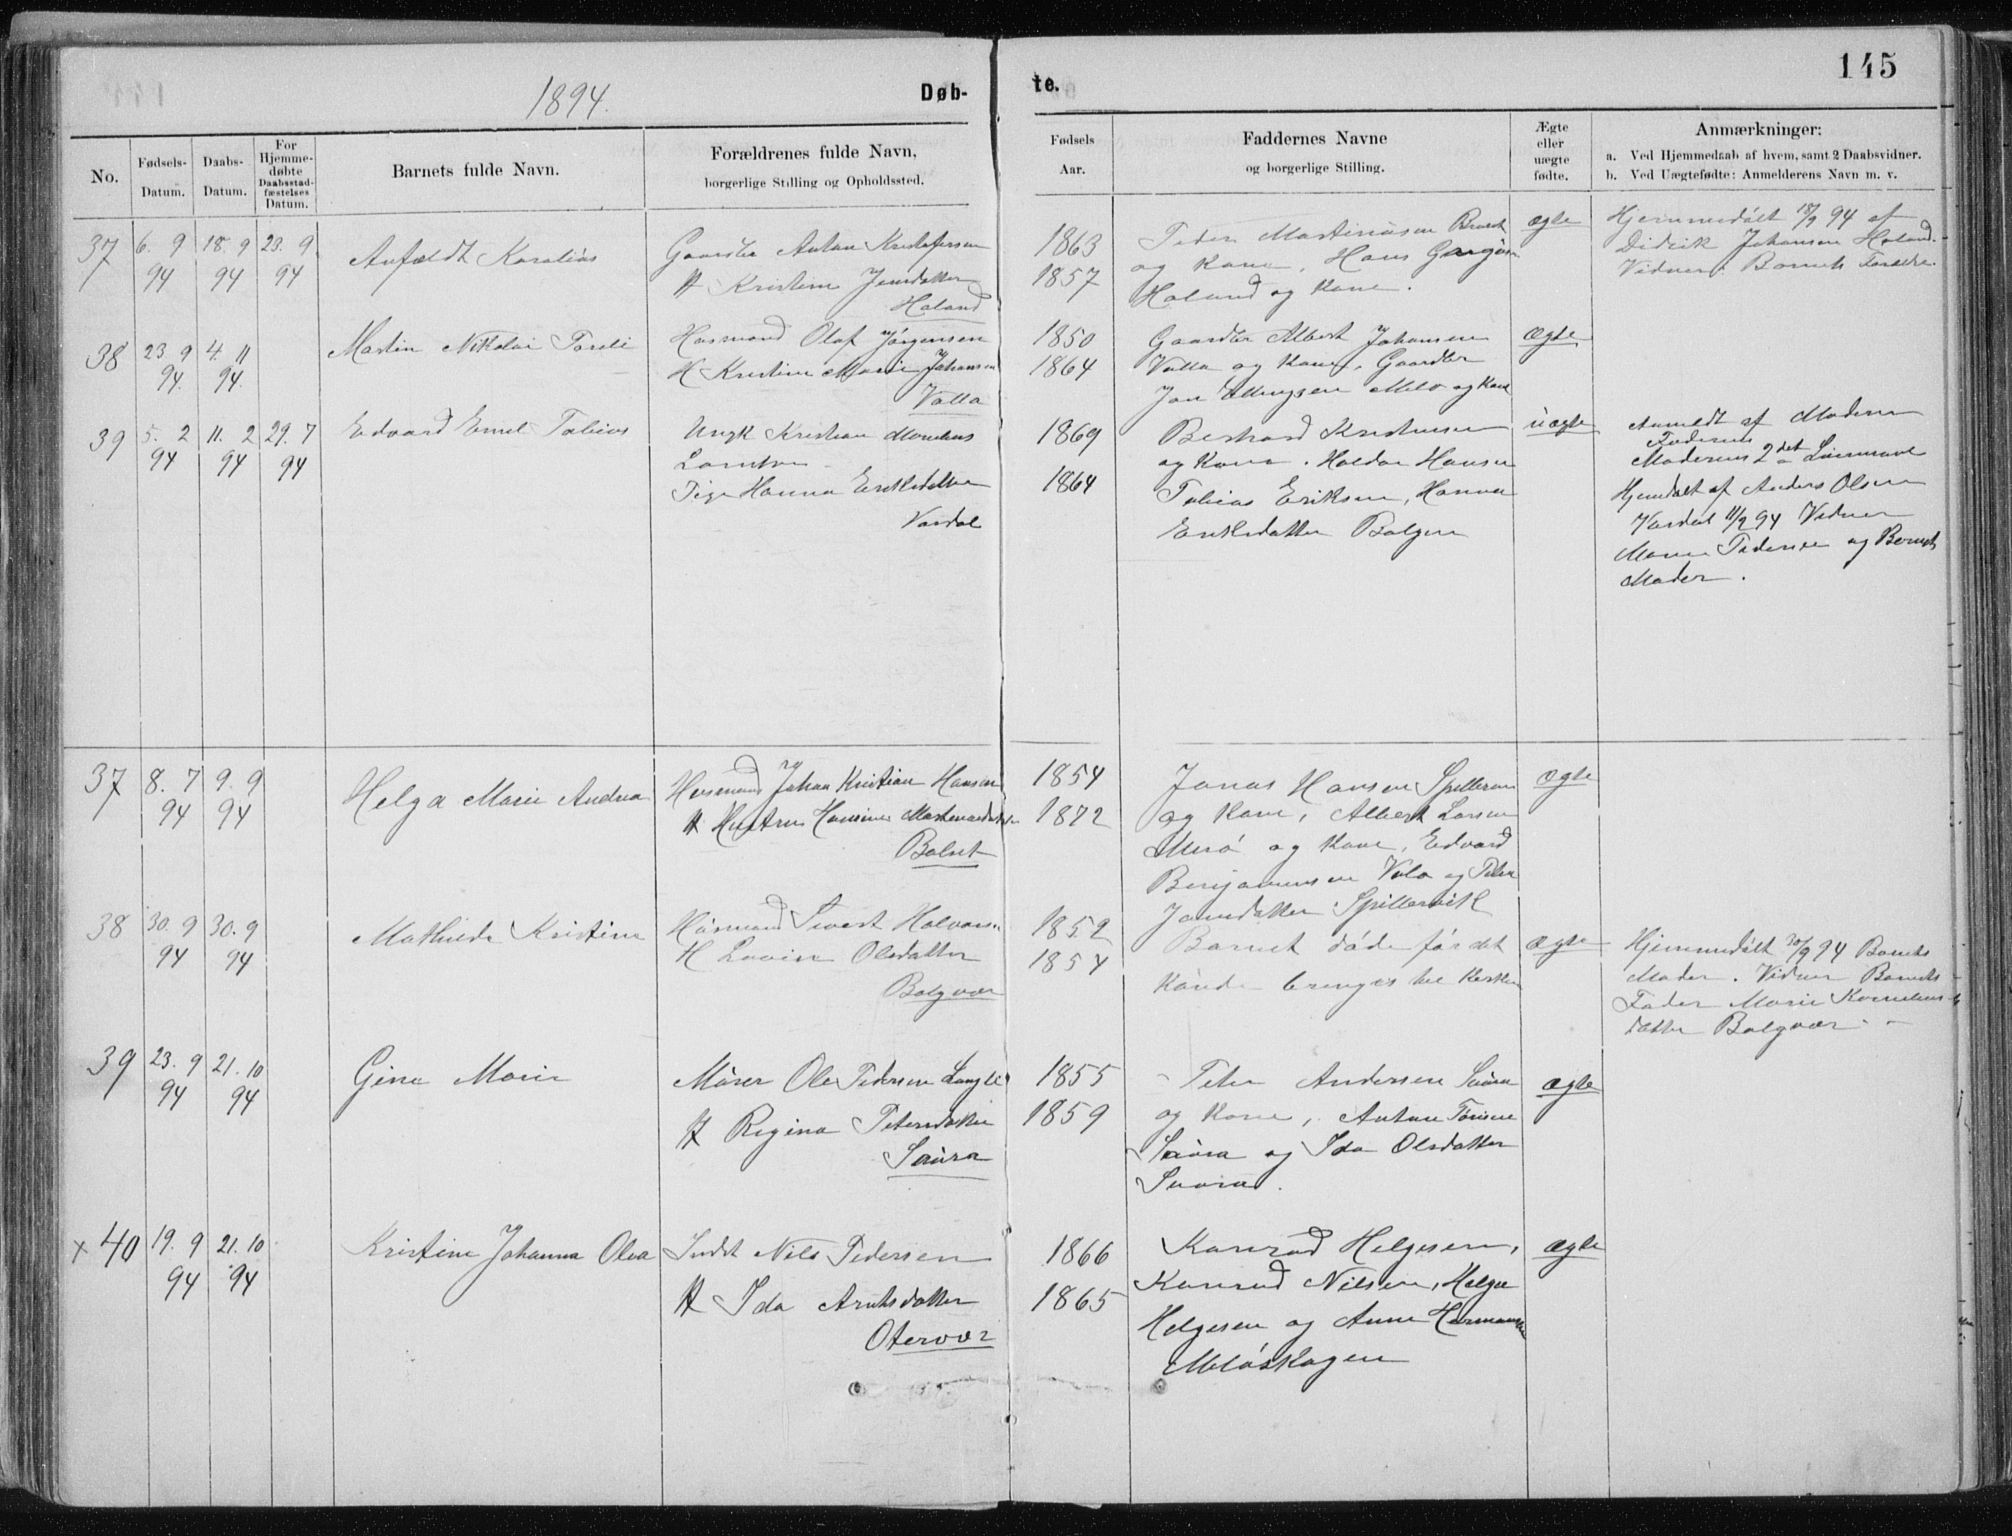 145
1894.
Døb-
te.
No.
Fødsels-Datum.
Daabs-Datum.
For Hjemme-døbte Daabsstad-fæstelses Datum.
Barnets fulde Navn.
Forældrenes fulde Navn,
borgerlige Stilling og Opholdssted.
Fødsels Aar.
Faddernes Navne
og borgerlige Stilling.
Ægte eller uægte fødte.
Anmærkninger:
a. Ved Hjemmedaab af hvem, samt 2 Daabsvidner.
b. Ved Uægtefødte: Anmelderens Navn m. v.
37 6. 9 94 18. 9 94 23. 9 94
Kristofersen
H Kristine Jensdatter
Haland
1863
1857
Peder Martinusen
og Kone, Hans
Haland og Kone.
ægte
Hjemmedøbt 18/9 94 af
Didrik Johansen Haland.
Vidner: Barnets Forældre
38 23. 9 94. 4. 11 94.
Martin Nikolai
Husmand Olaf Jørgensen
H Kristine Marie Johansen
Valla
1850
1864
Gaardbr Albert Johansen
Valla og Kone, Gaardbr
og Kone
ægte
39 5. 2 94 11. 2 94 29. 7 94
Edvard Emil Tobias
Ungk Kristian
Pige Hanna Eriksdatter
Vardal
1869
1864
Berhard Kristensen
og Kone. Haldor Hansen
Tobias Eriksen, Hanna
Eriksdatter
uægte
Anmeldt af Moderen
Faderens
Moderens 2det Leiermaal
Hjemdøbt af Anders Olsen
Vardal 11/2 94 Vidner
Pedersen og Barnets
Moder.
37 8. 7 94 9. 9 94
Helga Marie Andrea
Husmand Johan Kristian Hansen
H Hustru
Bolset
1854
1872
Jonas Hansen
og Kone, Albert Larsen
og Kone, Edvard
Benjaminsen
Spillervik
ægte
38 30. 9 94 30. 9 94
Mathilde Kristine
Husmand Sivert
H Lovise Olsdatter
Bolgvær
1852
1854
Barnet døde før det
kunde bringes til Kirken
ægte
Hjemmedøbt 30/9 94 Barnets
Moder. Vidner Barnets
Fader Marie Kornelius-
datter Bolgvær
39 23. 9 94 21. 10 94
Gina Marie
Murer Ole Pedersen
H Regina Petersdatter
Saura
1855
1859
Peter Andersen Saura
og Kone, Anton
Saura og Ida Olsdatter
Saura.
ægte
x 40 19. 9 94 21. 10 94
Kristine Johanna Olea
Indst Nils Pedersen
H Ida Arntsdatter
Otervær
1866
1865
Konrad Helgesen,
Konrad Nilsen, Helga
Helgesen og Anne
Meløskagen
ægte